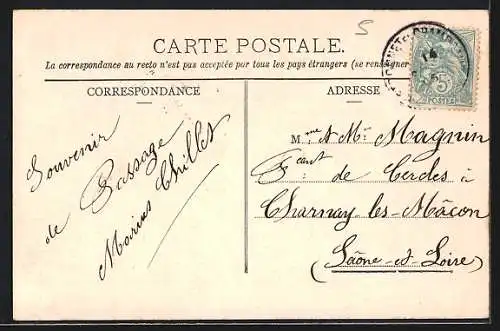 5
CARTE POSTALE.
La correspondance au recto n'est pas acceptée par tous les pays étrangers (se renseigner
CORRESPONDANCE
ADRESSE
Souvenir
de Passage
Marius Chillet
Mme & Mr Magnin
Fcant de Cercles à
Charnay-les-Mâcon
(Saône-et-Loire)
5
POSTES